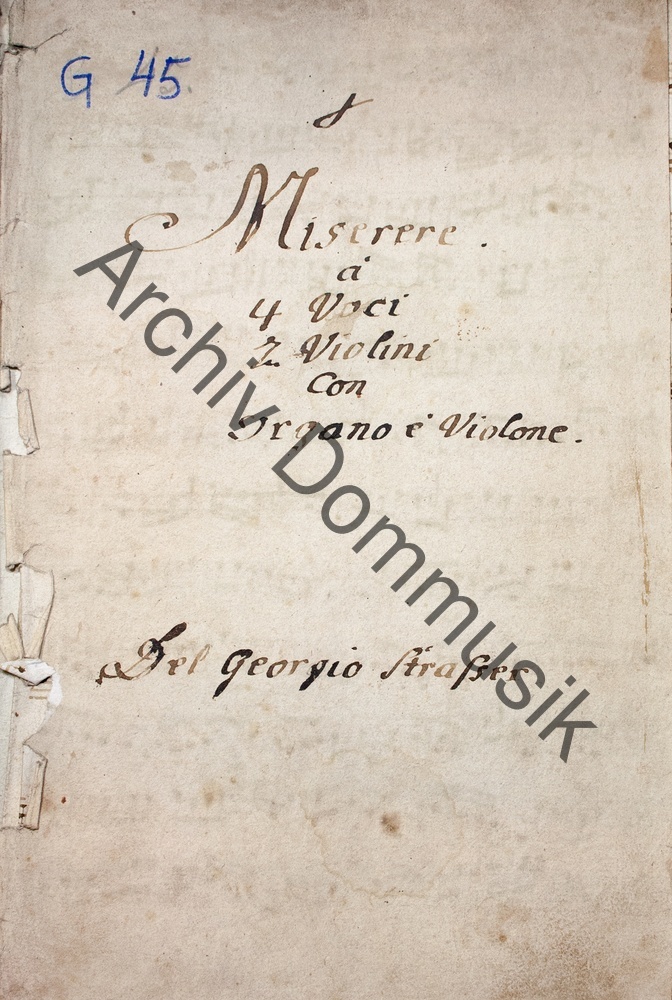 G 45.
Miserere.
à
4 Voci
2 Violini
Con
Organo è Violone.
Del Georgio Straſser
Archiv Dommusik